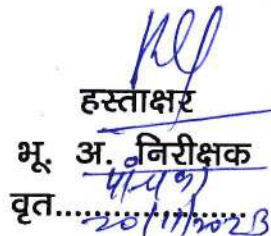 हस्ताक्षर
भू. अ. निरीक्षक
वृत..................
20/11/2023